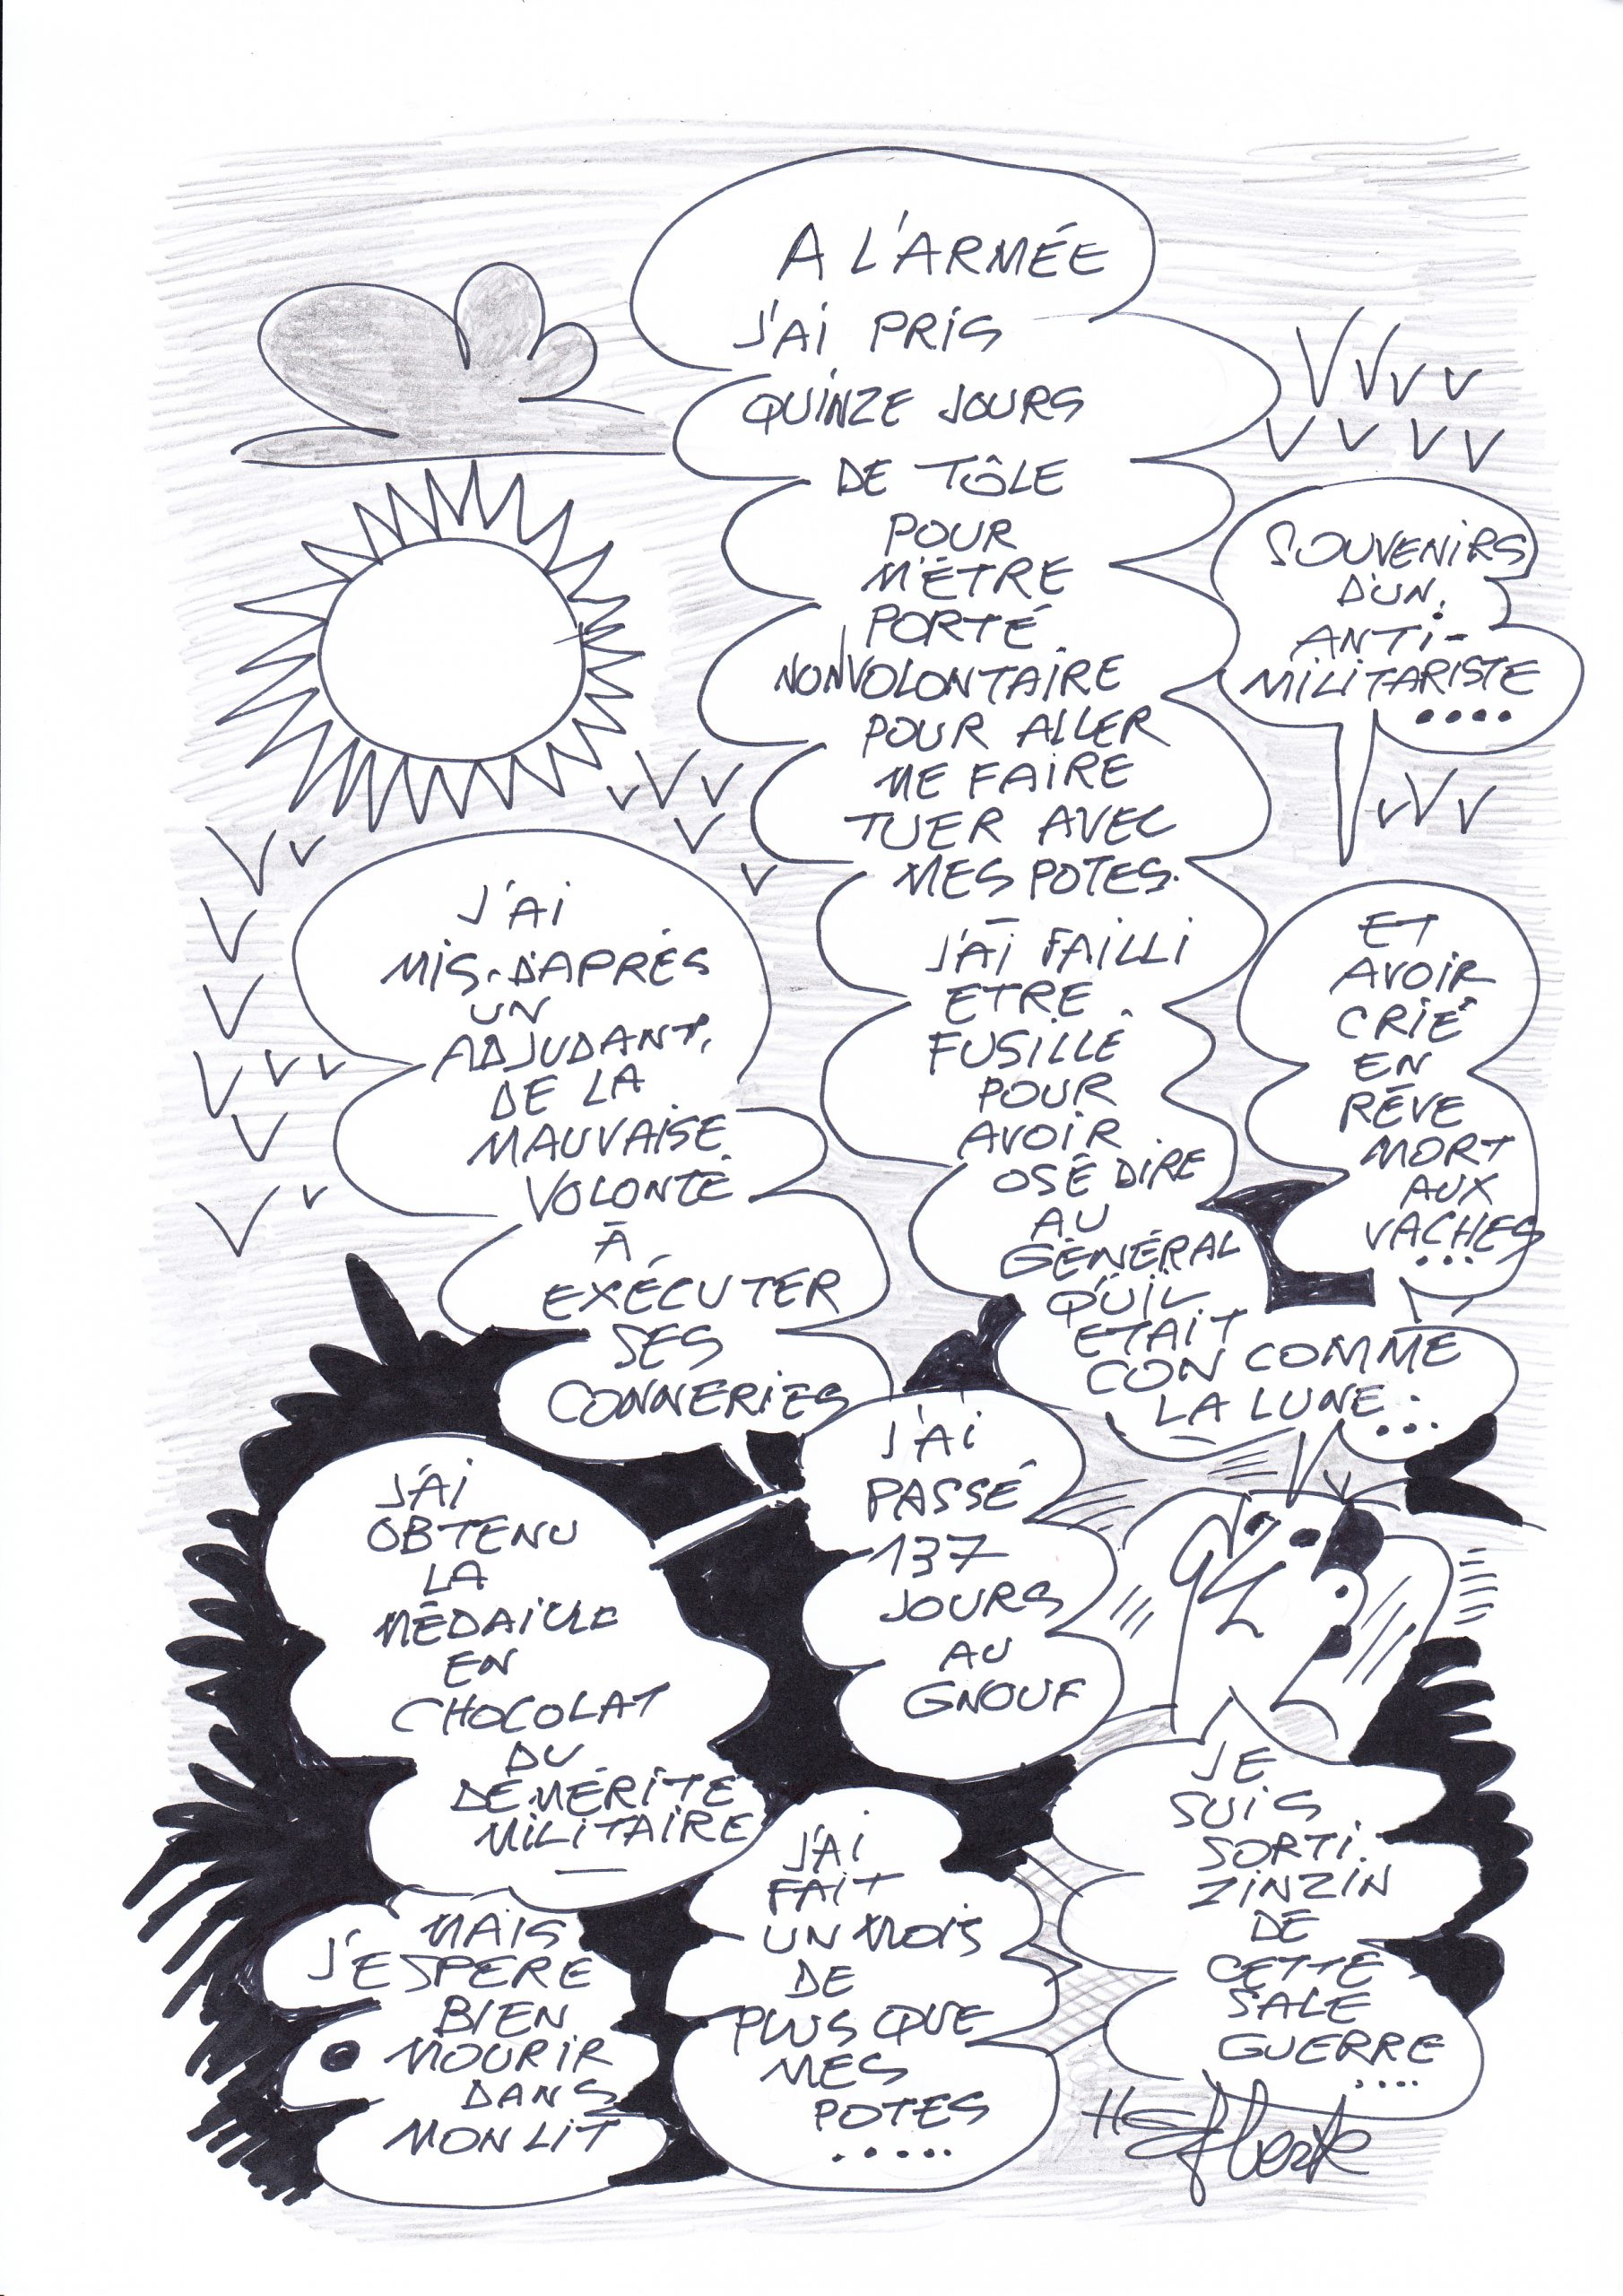 A L'ARMÉE
J'AI PRIS
QUINZE JOURS
DE TÔLE
POUR
M'ÊTRE
PORTÉ
NONVOLONTAIRE
POUR ALLER
ME FAIRE
TUER AVEC
MES POTES.
SOUVENIRS
D'UN
ANTI-
MILITARISTE
....
J'AI
MIS. D'APRÉS
UN
ADJUDANT,
DE LA
MAUVAISE
VOLONTÉ
À
EXÉCUTER
SES
CONNERIES
J'AI FAILLI
ETRE
FUSILLÉ
POUR
AVOIR
OSÉ DIRE
AU
GÉNÉRAL
QU'IL
ETAIT
CON COMME
LA LUNE.
...
ET
AVOIR
CRIÉ
EN
RÊVE
MORT
AUX
VACHES
...
J'AI
OBTENU
LA
MÉDAILLE
EN
CHOCOLAT
DU
DÉMÉRITE
MILITAIRE
J'AI
PASSÉ
137
JOURS
AU
GNOUF
MAIS
J'ESPERE
BIEN
MOURIR
DANS
MON LIT
J'AI
FAIT
UN MOIS
DE
PLUS QUE
MES
POTES
.....
JE
SUIS
SORTI
ZINZIN
DE
CETTE
SALE
GUERRE
....